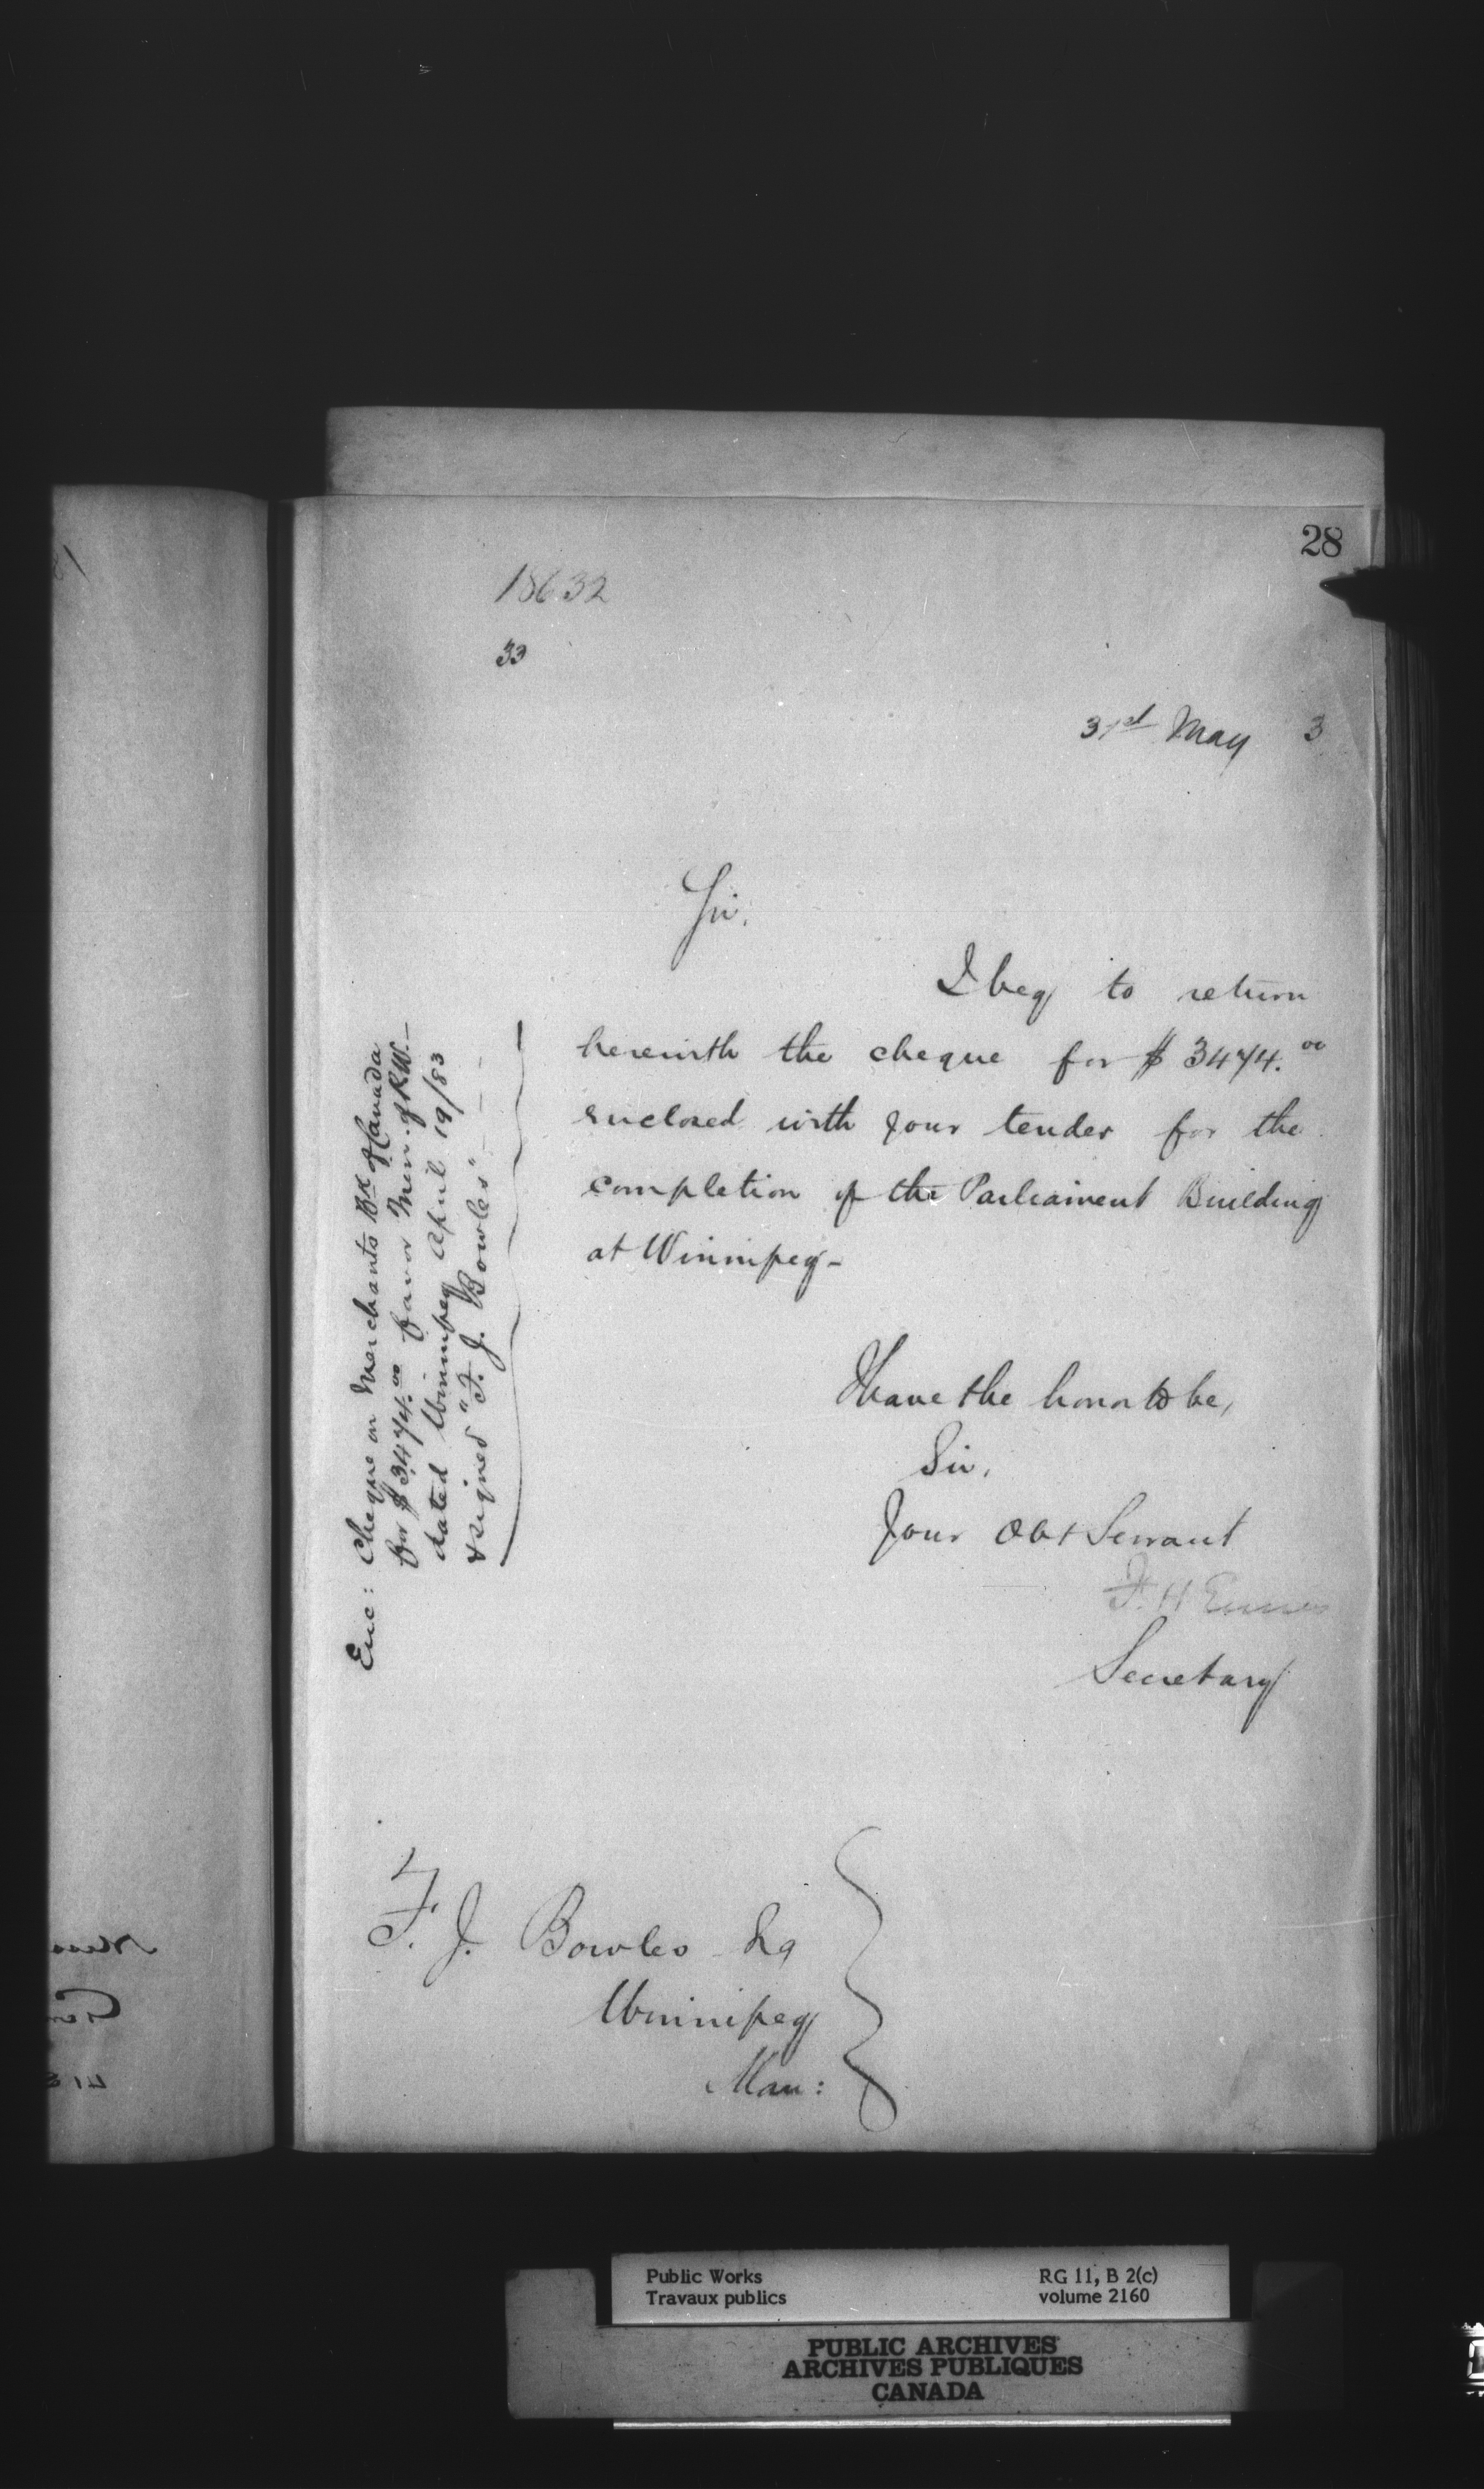 28
18632
33
31st May 3
Sir,
I beg to return
herewith the cheque for $3474.00
enclosed with your tender for the
completion of the Parliament Building
at Winnipeg -
I have the honor to be,
Sir,
Your Obt Servant
F. H Ennis
Secretary
Enc: Cheque on Merchants Bk of Canada
for $3474.00 favor Min. of P.W. -
dated Winnipeg April 19/83
& signed "F. J. Bowles" - - -
F. J. Bowles Eq
Winnipeg
Man:
Public Works
Travaux publics
RG 11, B 2(c)
volume 2160
PUBLIC ARCHIVES
ARCHIVES PUBLIQUES
CANADA